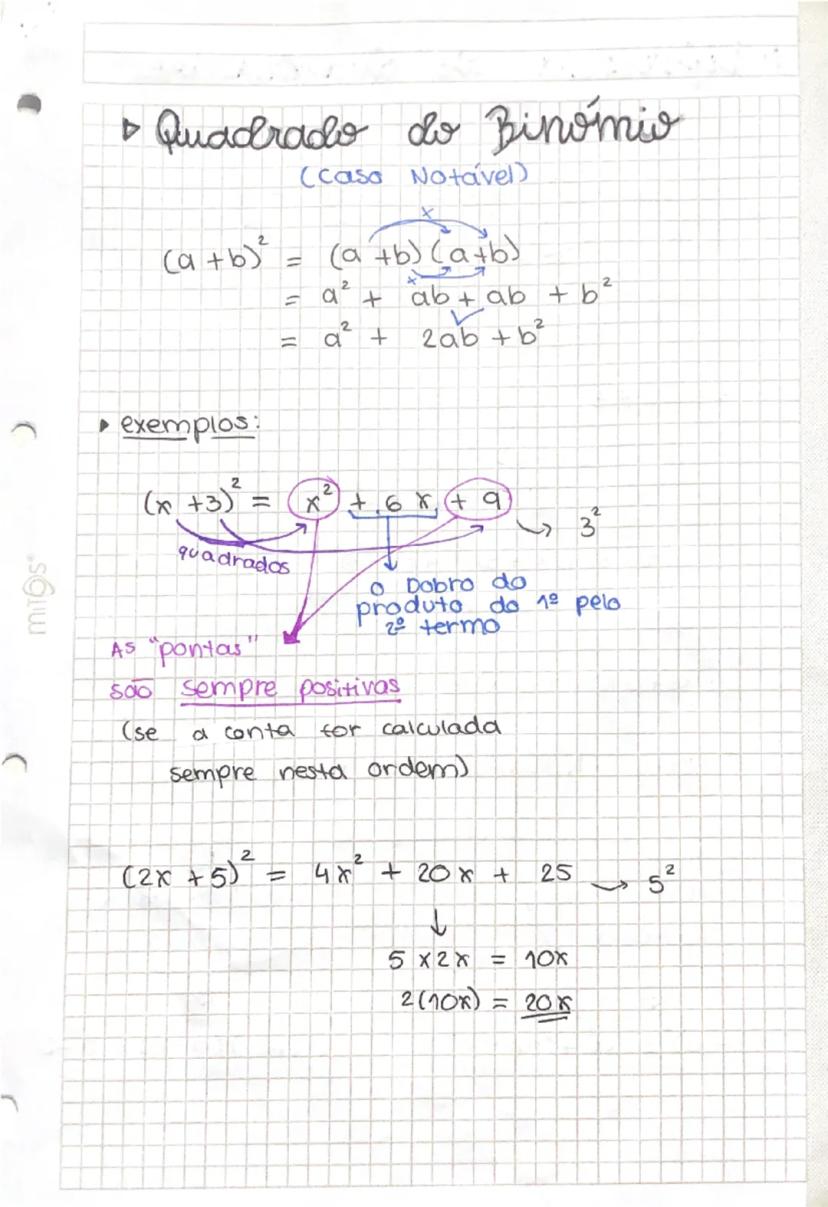 Quadrado do Binómio
(Caso Notável)
(a + b)² = (a + b) (a + b)
x
x
= a² + ab + ab + b²
= a² + 2ab + b²
exemplos:
(x + 3)² = x² + 6x + 9 → 3²
quadrados
o Dobro do
produto do 1º pelo
2º termo
As "pontas"
são sempre positivas
(se a conta for calculada
sempre nesta ordem)
(2x + 5)² = 4x² + 20x + 25 → 5²
↓
5 x 2x = 10x
2(10x) = 20x
mitos